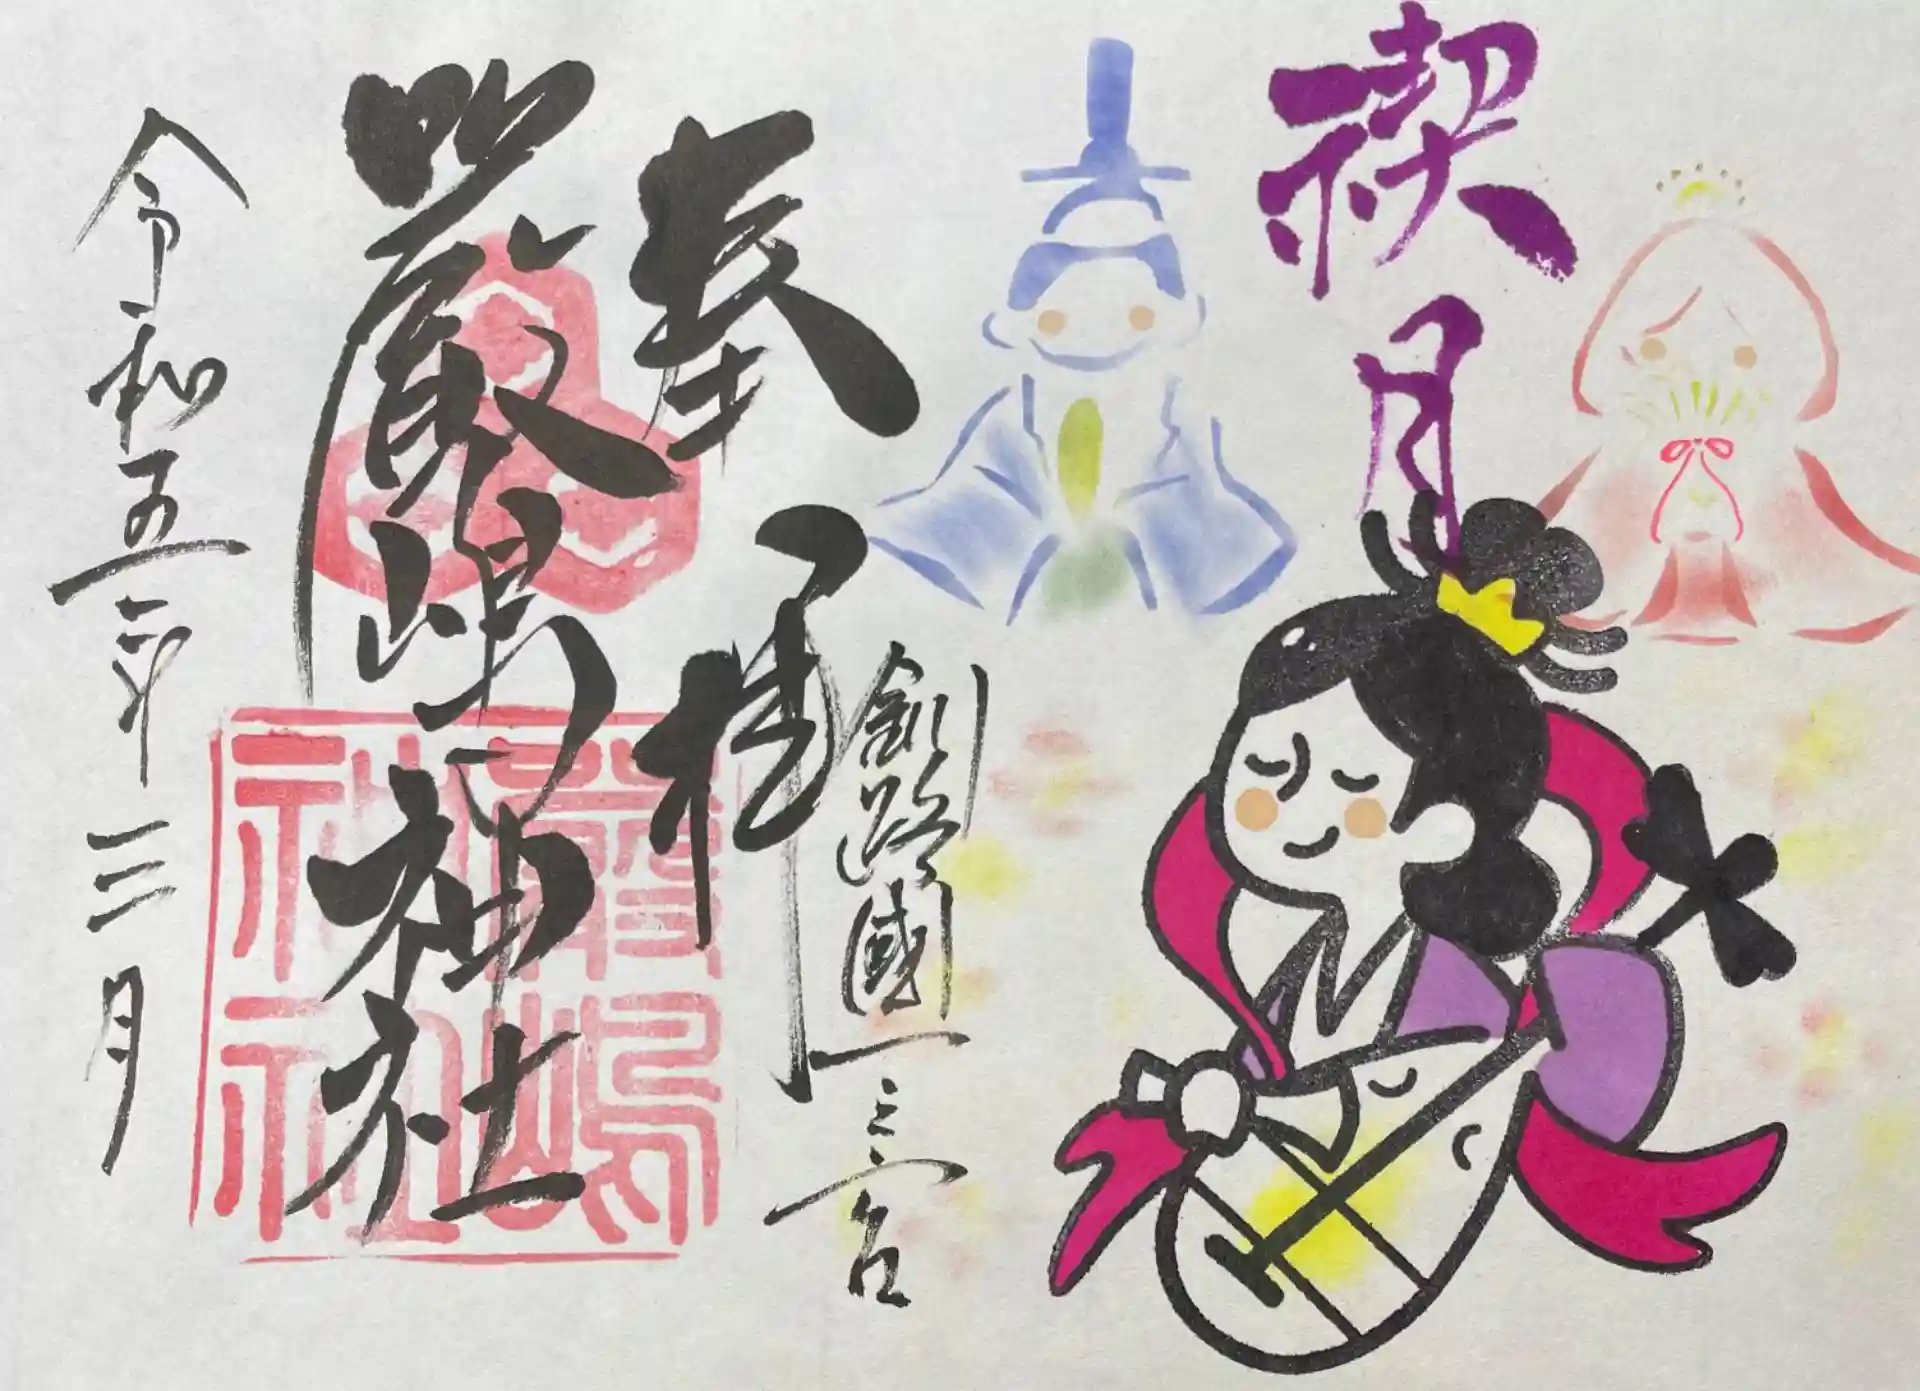 禊月
奉拝
釧路國一之宮
嚴嶋神社
嚴嶋
神社
令和五年三月